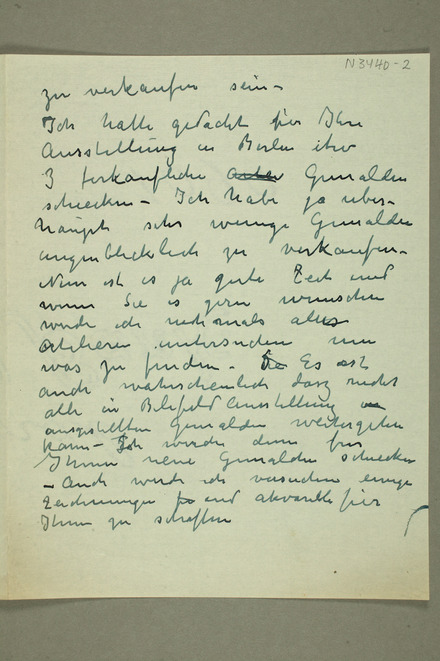 N3440-2
zu verkaufen sein –
Ich hatte gedacht für Ihre
Ausstellung in Berlin
3 ferkaufliche Gemälden
schicken – Ich habe ja uber-
haupt sehr wenige Gemälden
augenblicklich zu verkaufen –
Nun ist es ja gute Zeit und
wenn Sie es gern wünschen
werde ich nochmals
atelieren untersuchen um
was zu finden – Es ist
auch wahrscheinlich dasz nicht
alle in Bilefeld Ausstellung
ausgestellten Gemälden weitergehen
kann – Ich werde dann für
Ihnen neue Gemälden schicken
– Auch werde ich versuchen einige
Zeichnungen und akvarelle für
Ihnen zu schaffen